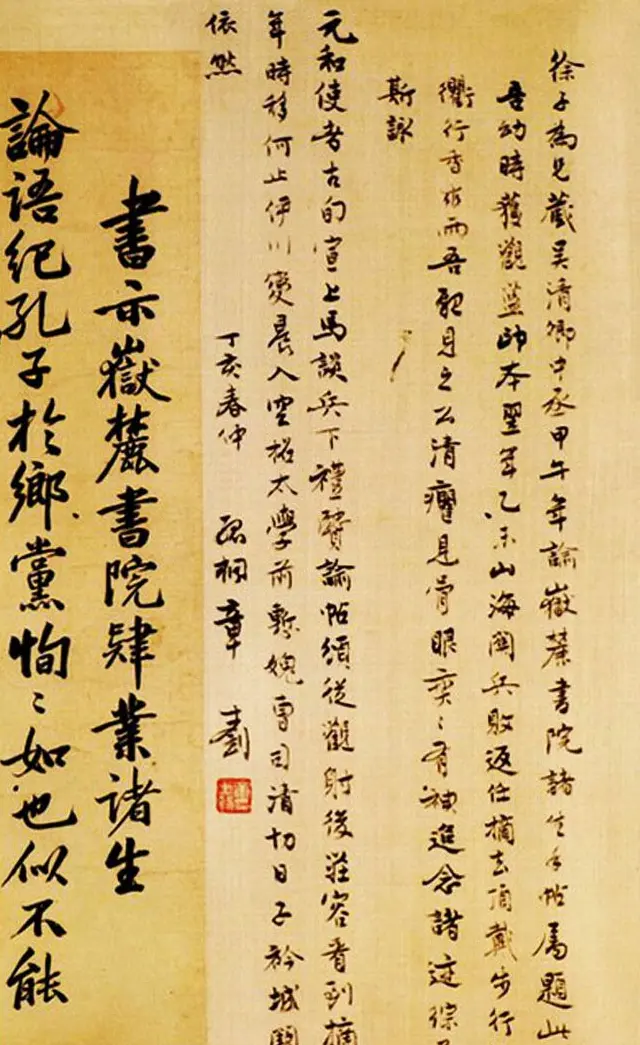 徐子為兄藏吴清卿中丞甲午年諭嶽麓書院諸生手帖属題此
吾幼時獲觀蓝帥本翌年乙未山海関兵敗返任摘去頂戴步行
衢行香 而吾親見之公清癯見骨眼奕〻有神追念諸迹综
斯詠
元和使者古旬宣上馬談兵下禮賢諭帖須從觀射後莊容看到摘
年時移何止伊川變晨入空招太學前慙媿曹司清切日子衿城闕
依然
丁亥春仲 孤桐章士釗
書示嶽麓書院肄業諸生
論語紀孔子於鄉黨恂〻如也似不能